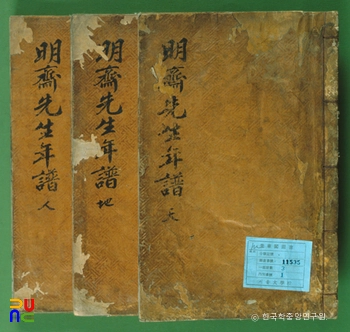 明齋先生年譜 天
明齋先生年譜 地
明齋先生年譜 人
11535
© 한국학중앙연구원